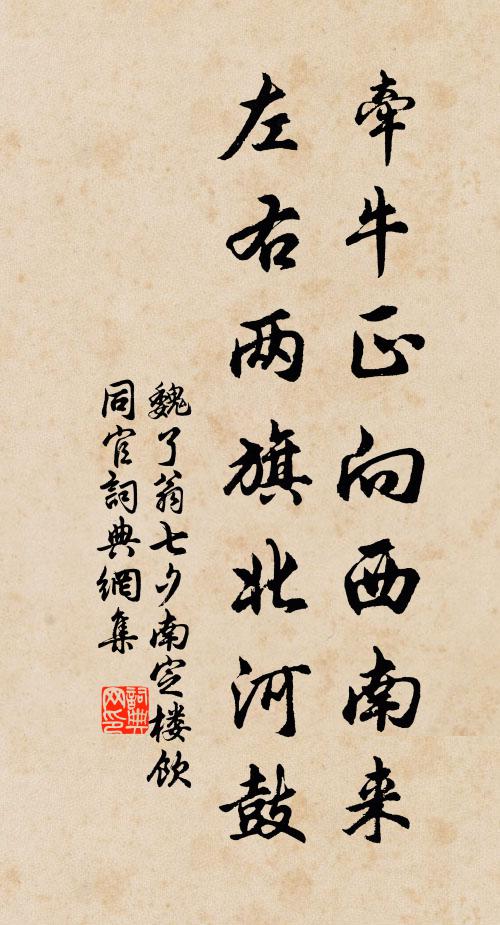 牵牛正向西南来
左右两旗北河鼓
魏了翁七夕南定楼饮
同官詞典網集
詞典网印